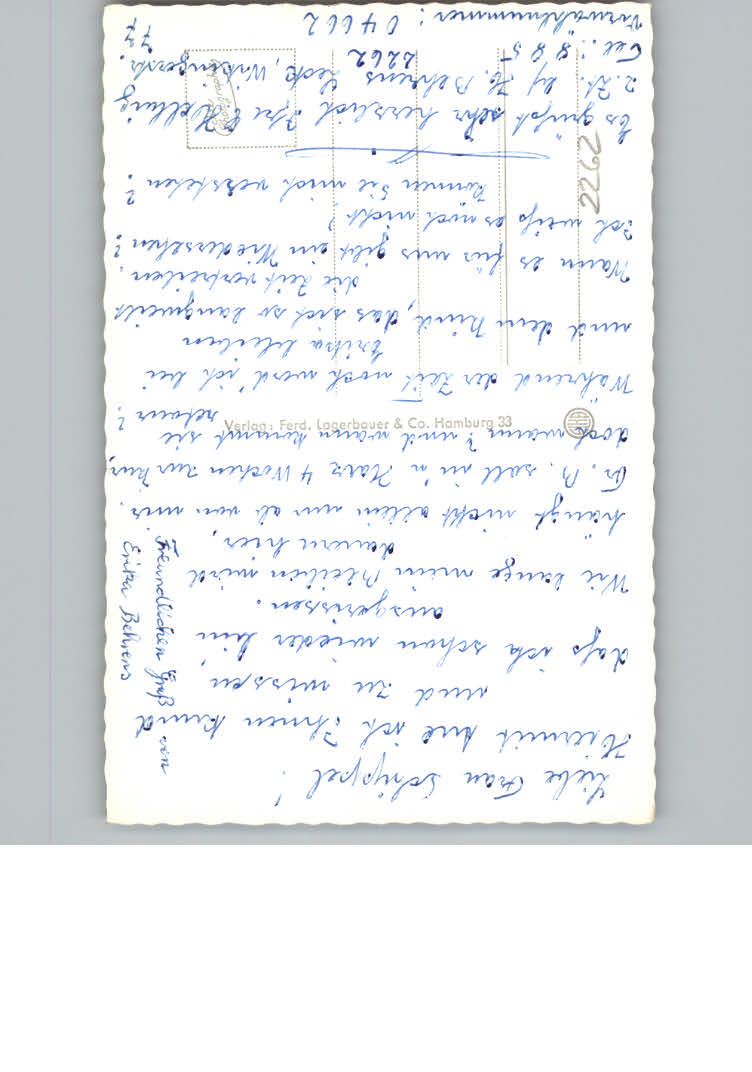 Liebe Frau Schippel!
Hiermit tue ich Ihnen kund
und zu wissen,
daß ich schon wieder bin
ausgerissen.
Wie lange mein Bleiben wird
dauern hier,
hängt nicht allein nur ab von mir.
Fr. B. soll in'n Harz 4 Wochen zur Kur,
doch wann? und wann kommt sie
retour?
Während der Zeit noch werd' ich bei
Erika bleiben
und dem Kind, das sich so langweilt
die Zeit vertreiben.
Wann es für uns gibt ein Wiedersehen?
Ich weiß es noch nicht?
Können Sie mich verstehen?
Es grüßt sehr herzlich Ihre
z. Zt. bei H. Behrens Leck, Wikingerstr.
2262
77
Tel.: 885
Vorwahlnummer: 04662
Freundlichen Gruß von
Erika Behrens
Verlag: Ferd. Lagerbauer & Co. Hamburg 33
2262